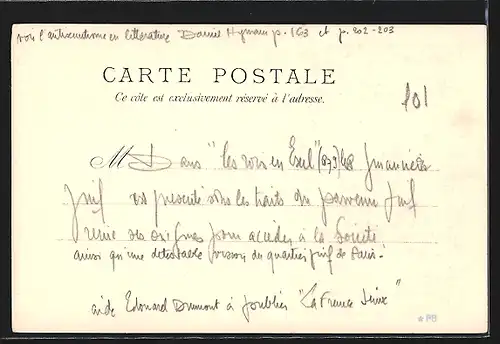 voir l'antisemitisme en littérature Daniel p. 163 et p. 202-203
CARTE POSTALE
Ce côté est exclusivement réservé à l'adresse.
101
M Dans "les rois en Exil" le financier
juif est présenté sous les traits du parvenu juif
renie ses origines pour accéder à la Société
ainsi qu'une détestable du quartier juif de Paris.
aide Edouard Drumont à publier "La France Juive"
*PB